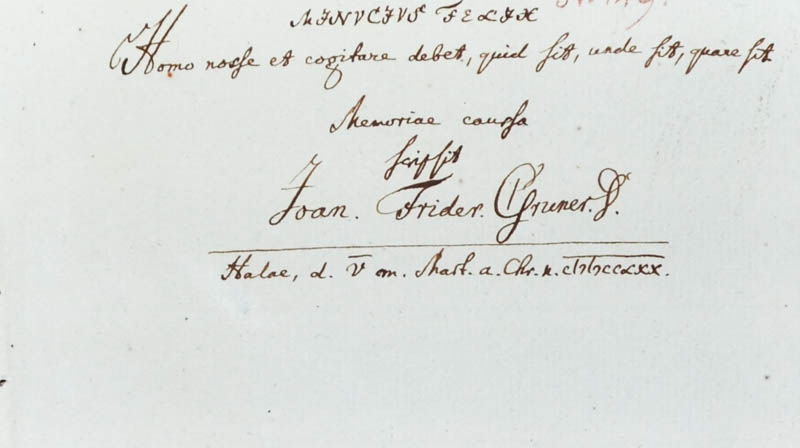 MINVCIVS FELIX
Homo nosse et cogitare debet, quid sit, unde sit, quare sit
Memoriae caussa
scripsit
Joan. Frider. Gruner. D.
Halae, d. V m. Mart. a. Chr. n. cIɔIɔccLXX.